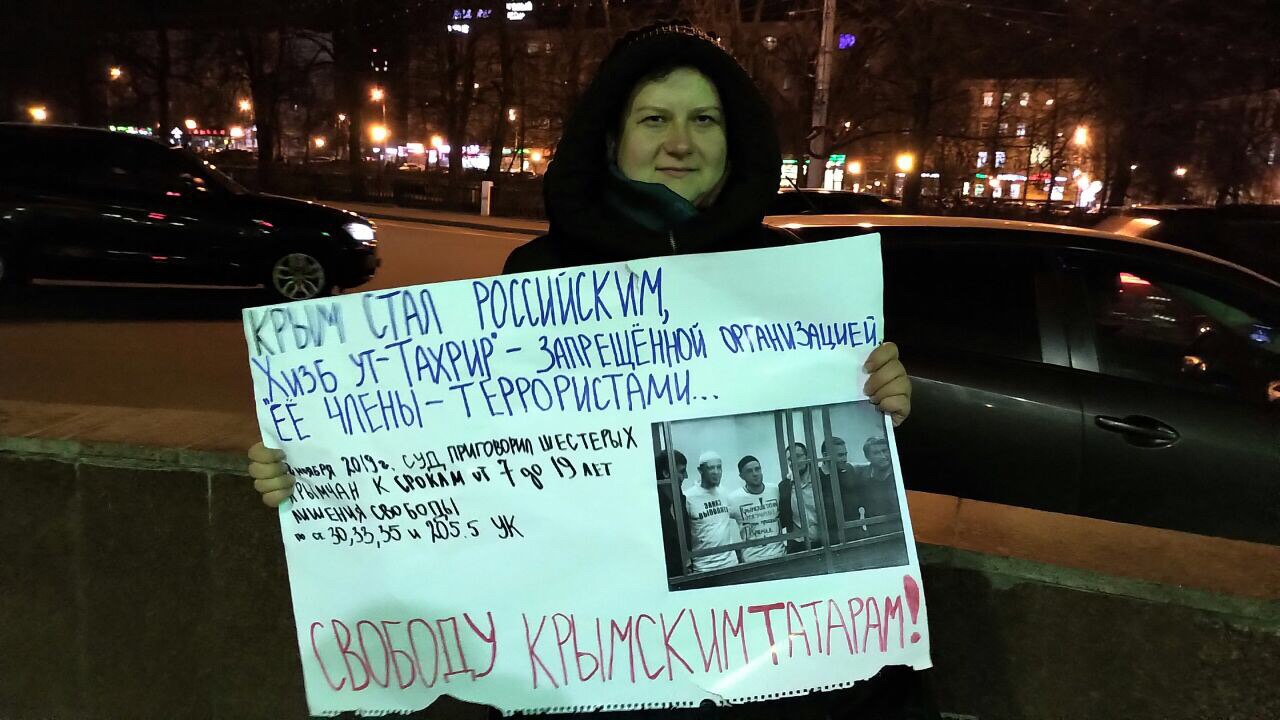 КРЫМ СТАЛ РОССИЙСКИМ,
"ХИЗБ УТ-ТАХРИР" - ЗАПРЕЩЁННОЙ ОРГАНИЗАЦИЕЙ,
ЕЁ ЧЛЕНЫ - ТЕРРОРИСТАМИ...
2019 г. СУД ПРИГОВОРИЛ ШЕСТЕРЫХ
КРЫМЧАН К СРОКАМ ОТ 7 до 19 ЛЕТ
ЛИШЕНИЯ СВОБОДЫ
по ст 30, 33, 35 и 205.5 УК
СВОБОДУ КРЫМСКИМ ТАТАРАМ!